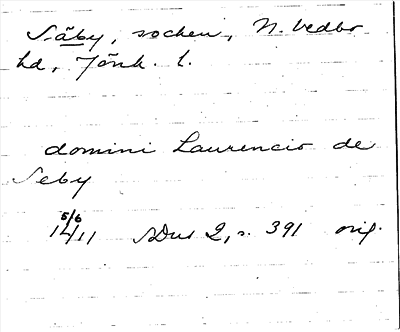 Säby, socken, N. Vedbo
hd, Jönk. l.
domini Laurencio de
Seby
5/6
1411 SDns 2, s. 391 orig.